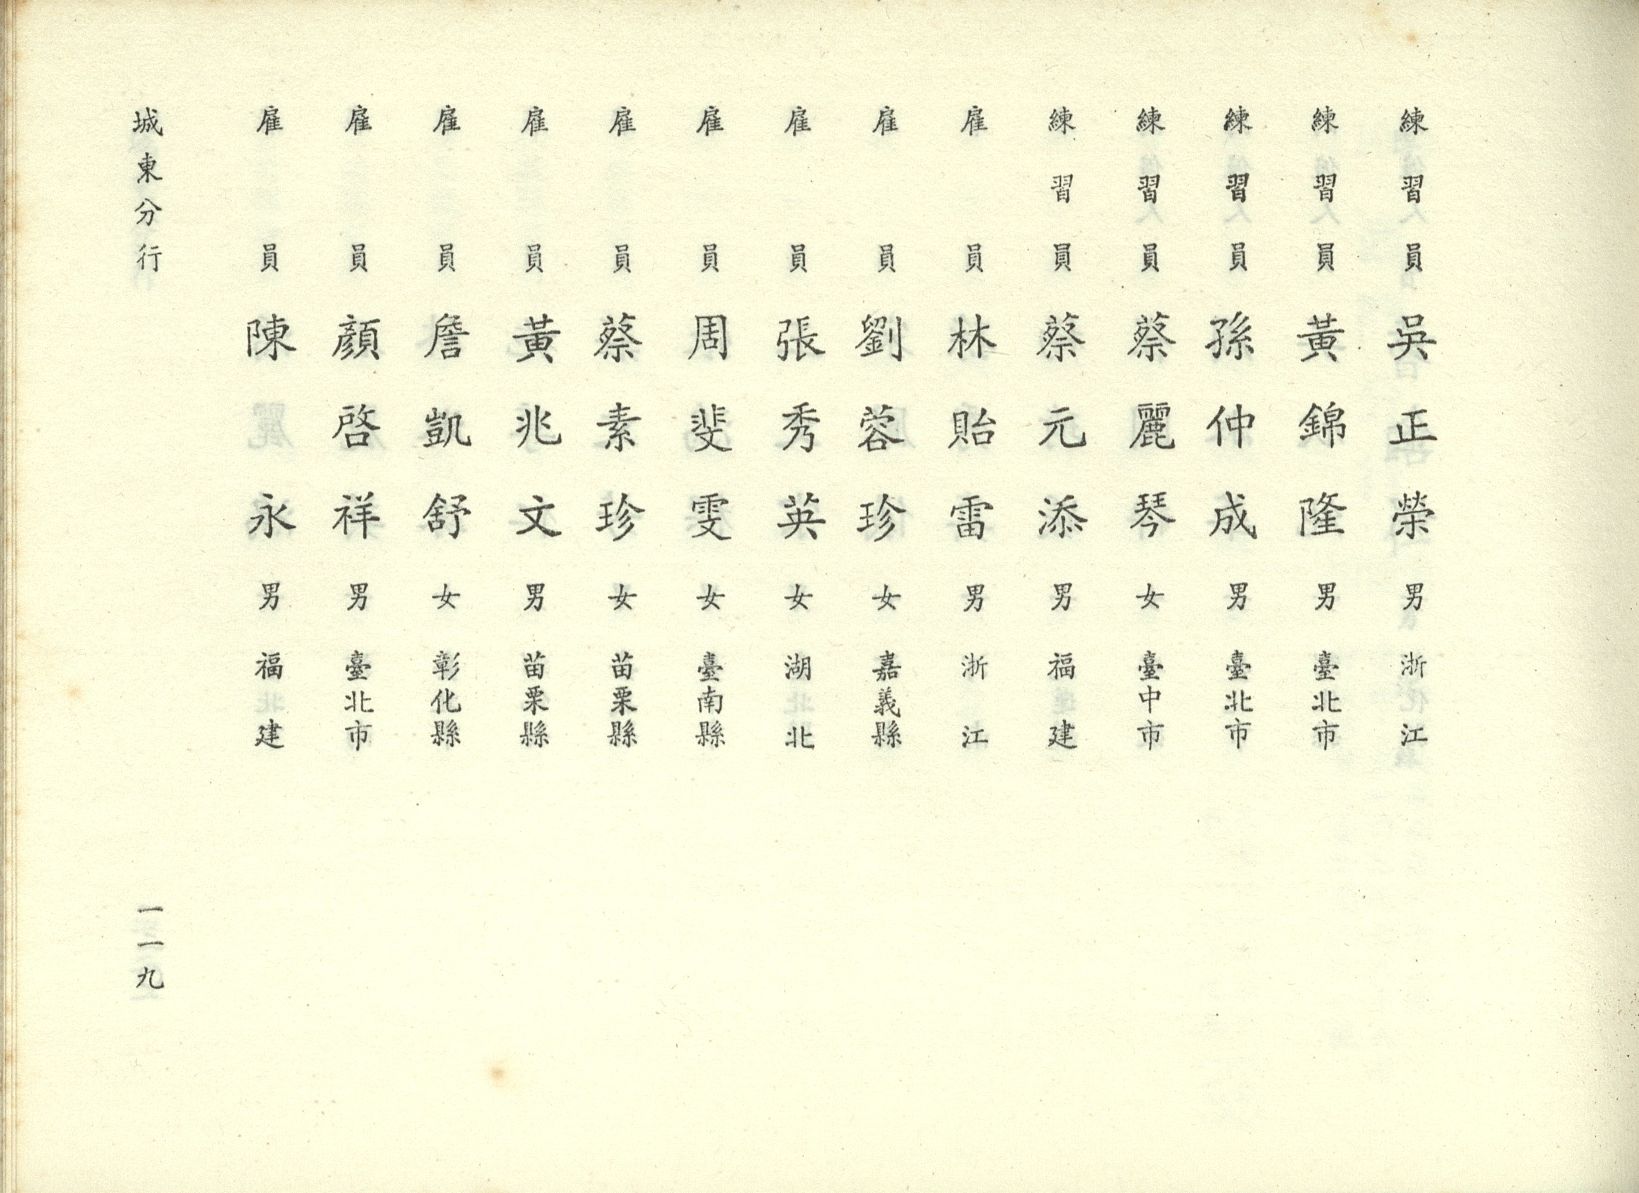 練習員 吳正榮 男 浙江
練習員 黃錦隆 男 臺北市
練習員 孫仲成 男 臺北市
練習員 蔡麗琴 女 臺中市
練習員 蔡元添 男 福建
雇員 林貽雷 男 浙江
雇員 劉蓉珍 女 嘉義縣
雇員 張秀英 女 湖北
雇員 周斐雯 女 臺南縣
雇員 蔡素珍 女 苗栗縣
雇員 黃兆文 男 苗栗縣
雇員 詹凱舒 女 彰化縣
雇員 顏啓祥 男 臺北市
雇員 陳永 男 福建
城東分行 一一九